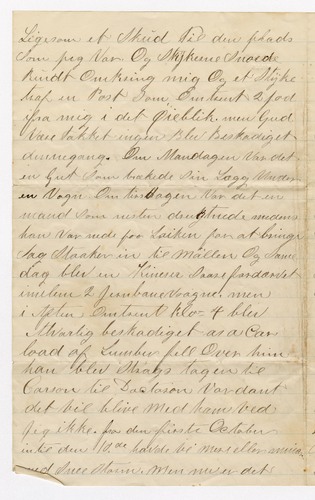 Ligesom et Skud til den plads
Som jeg Var. Og Stykerne Snoede
Rundt Omkring mig Og et Stÿke
traf en Post Som Omtrent 2 fod
ifra mig i det Øieblik. men Gud
Være takket ingen blev Beskadiget
denne gang. Om Mandagen Var det
en Gut Som brækede Sin Læg Under
en Vogn. Om tirsdagen Var det en
mand Som misten den medens
han Var ude for Saiken for at bringe
Sag Stokker in til Møllen Og Same
dag blev en Saare fordærvet
imellem 2 Jernbane Vogne. men
i Aften Omtrent Klo= 4 blev
Alvarlig beskadiget as a Car
load af Lumber fell Over him
han blev Strags tagen til
Carson til Doctoren Vordant
det vil blive Med ham Ved
Jeg ikke. fra den første October
intil den 10de havde vi mest
med Snee Storm. Men nu ser det